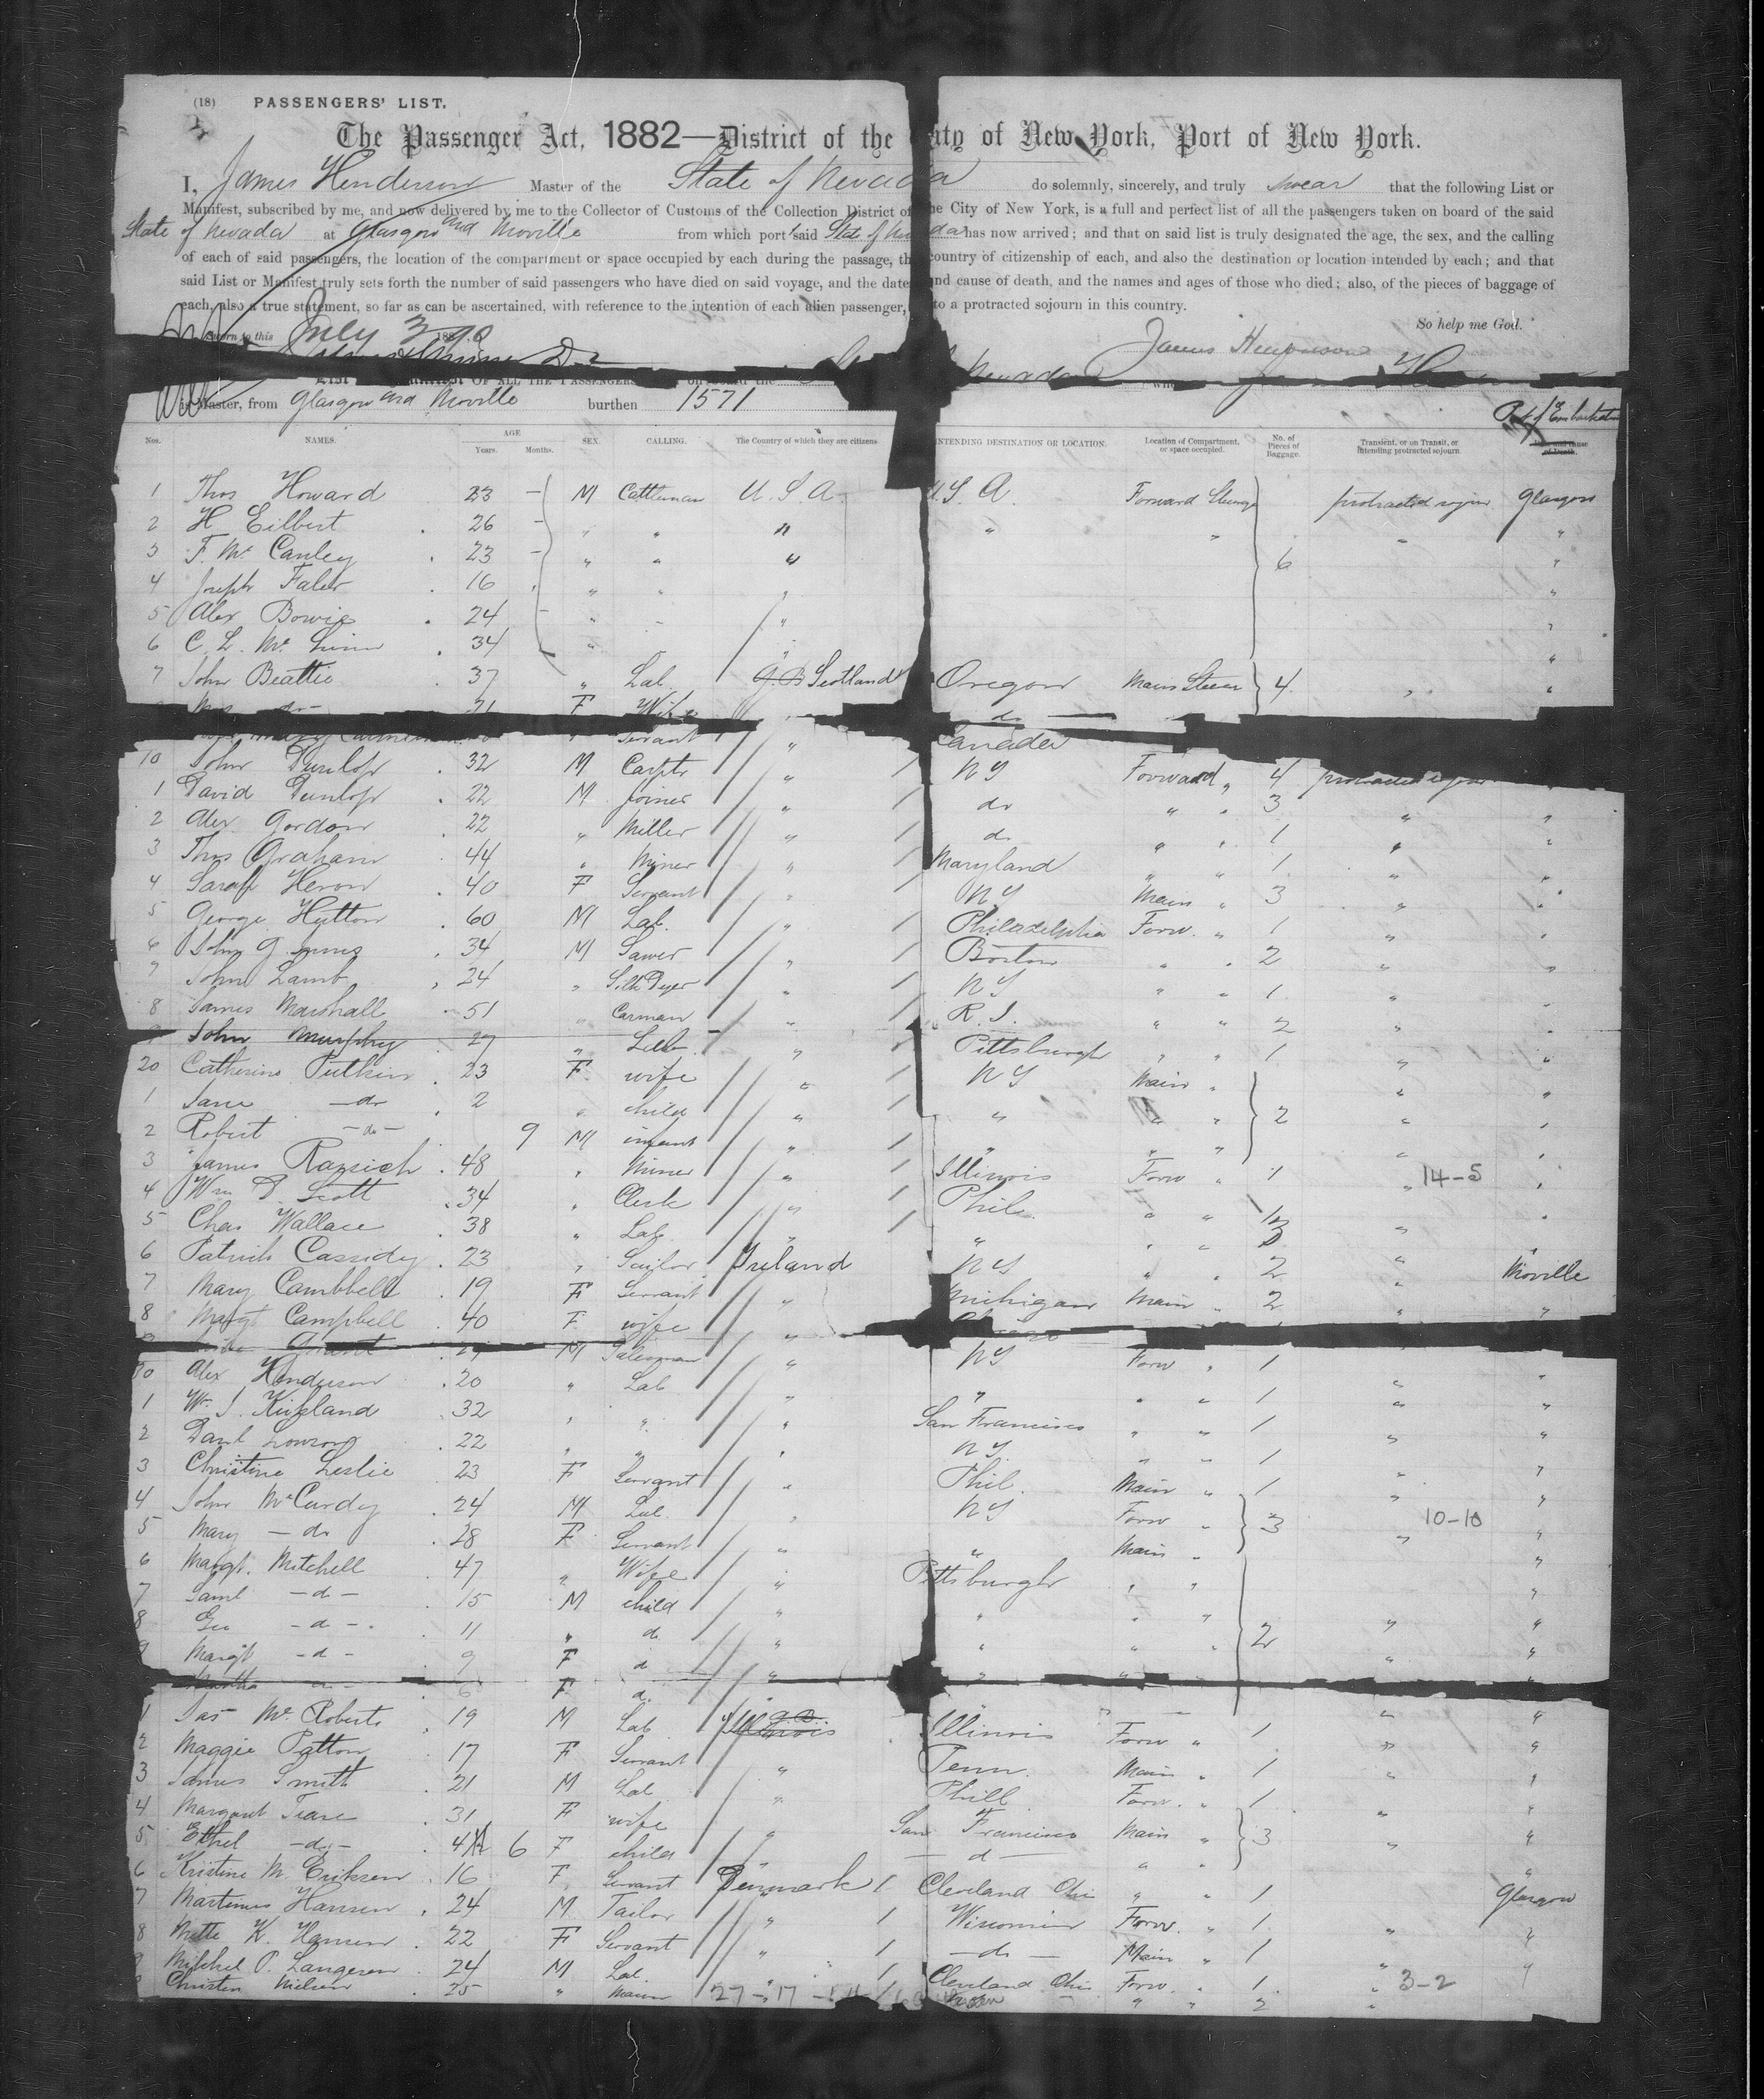 (18) PASSENGERS' LIST.
The Passenger Act, 1882—District of the City of New York, Port of New York.
I, James Henderson Master of the State of Nevada do solemnly, sincerely, and truly swear that the following List or
Manifest, subscribed by me, and now delivered by me to the Collector of Customs of the Collection District of the City of New York, is a full and perfect list of all the passengers taken on board of the said
State of Nevada at Glasgow and Moville from which port said State of Nevada has now arrived; and that on said list is truly designated the age, the sex, and the calling
of each of said passengers, the location of the compartment or space occupied by each during the passage, the country of citizenship of each, and also the destination or location intended by each; and that
said List or Manifest truly sets forth the number of said passengers who have died on said voyage, and the date and cause of death, and the names and ages of those who died; also, of the pieces of baggage of
each, also a true statement, so far as can be ascertained, with reference to the intention of each alien passenger, to a protracted sojourn in this country.
So help me God.
Sworn to this July 3 1890
James Henderson
OF ALL THE PASSENGERS Nevada
is Master, from Glasgow and Moville burthen 1571
Port of Embarkation
Nos. NAMES. AGE Years. Months. SEX. CALLING. The Country of which they are citizens. INTENDING DESTINATION OR LOCATION. Location of Compartment, or space occupied. No. of Pieces of Baggage. Transient, or on Transit, or intending protracted sojourn.
1 Thos Howard 23 — M Cattleman U.S.A. U.S.A. Forward Steerage protracted sojour Glasgow
2 H Eilbert 26 — " " " " " " "
3 F. Mc Cauley 23 — " " " 6 "
4 Joseph Faler 16 " " " "
5 Alex Bowie 24 — " " "
6 C. L. Mc 34 " " "
7 John Beattie 37 " Lab. G.B Scotland Oregon Main Steer 4 " "
Mrs -do- 31 F Wife do
Servant " Canada
10 John Dunlop 32 M Carptr " NY Forward " 4 protracted sojour
1 David Dunlop 22 M Joiner " do " " 3 " "
2 Alex Gordon 22 " Miller " do " " 1 " "
3 Thos Graham 44 " Miner " Maryland " " 1 " "
4 Sarah Heron 40 F Servant " NY Main " 3 " "
5 George Hutton 60 M Lab. " Philadelphia Forw. " 1 " "
6 John G 34 M Sawer " Boston " " 2 " "
7 John Lamb 24 " Silk Dyer " NY " " 1 "
8 James Marshall 51 Carman " R.I. " " 2 "
9 John Murphy 27 " Lab " Pittsburgh " " 1 " "
20 Catherine 23 F wife " NY Main " " "
1 Jane -do 2 " child " " " " 2 " "
2 Robert -do- 9 M infant " " " " " "
3 James 48 " Miner " Illinois Forw " 1 " 14-5 "
4 Wm D. Scott 34 " Clerk " Phil " " "
5 Chas Wallace 38 " Lab " " " " 3 " "
6 Patrick Cassidy 23 " Ireland NY " " 2 " Moville
7 Mary Cambbell 19 F Servant " Michigan Main " 2 " "
8 Margt Campbell 40 F wife "
Grant M Salesman " NY Forw " 1
30 Alex Henderson 20 " Lab " " " " 1 " "
1 Wm J. Kirkland 32 " " " San Francisco " " 1 " "
2 Danl 22 " " " NY " " 1 "
3 Christine Leslie 23 F Servant " Phil. Main " 1 " "
4 John McCurdy 24 M Lab " NY Forw " 3 10-10 "
5 Mary -do 28 F Servant " " Main " " "
6 Margt. Mitchell 47 " Wife " Pittsburgh " " "
7 Saml -d- 15 M child " " " " "
8 Geo -d- 11 " d " " " " 2 " "
9 Margt -d- 9 F d " " " "
Martha -d- 6 F d. "
1 Jas Mc Roberts 19 M Lab Illinois Illinois Forw " 1 " "
2 Maggie Patton 17 F Servant " Penn. Main " 1 " "
3 James Smith 21 M Lab " Phill Forw. " 1 "
4 Margaret 31 F wife " San Francisco Main " 3 " "
5 Ethel -do- 4 6 F child " -d- " " "
6 Kristine M. Eriksen 16 F Servant Denmark Cleveland Ohio " " 1 Glasgow
7 Martinus Hansen 24 M Tailor " Wisconsin Forw. " 1 " "
8 Mette K. Hansen 22 F Servant " -do- Main " 1 "
9 P. Langesen 24 M Lab. " Cleveland Ohio Forw. " 1 " 3-2 "
Christen Nielsen 25 " " " 2 "